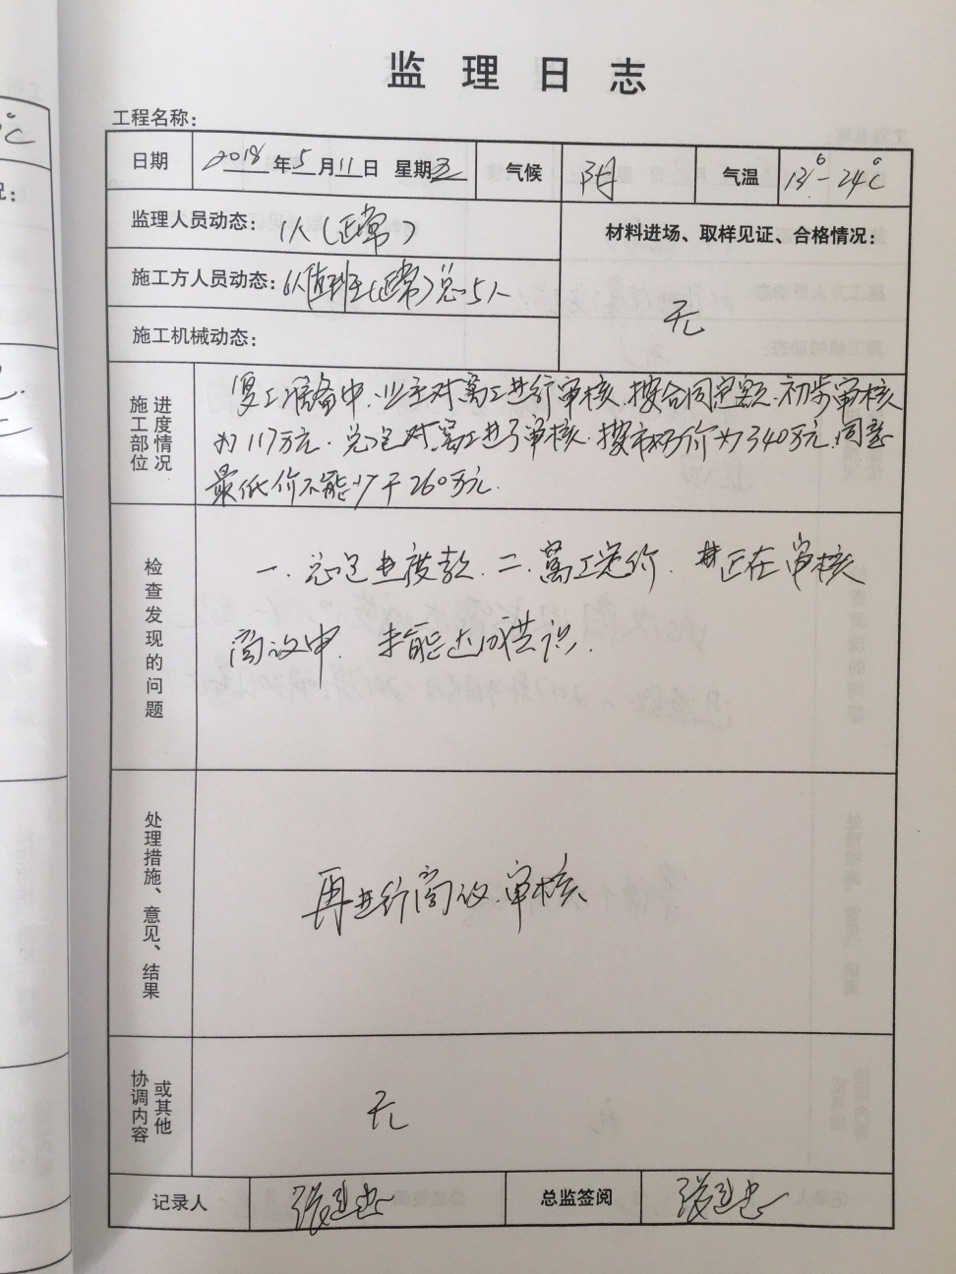 监理日志
工程名称：
日期 2018年5月11日 星期五 气候 阴 气温 12°-24°C
监理人员动态：1人（正常）
材料进场、取样见证、合格情况：
施工方人员动态：值班（正常）总5人
无
施工机械动态：
进度情况
施工部位
复工准备中.业主对窝工进行审核.按合同定额.初步审核
为117万元.总包对窝工进行审核.按市场价为340万元.同意
最低价不能少于260万元.
检查发现的问题
一.总包进度款.二.窝工定价.并正在审核
商议中.未能达成共识.
处理措施、意见、结果
再进行商议.审核
或其他
协调内容
无
记录人 张建忠 总监签阅 张建忠